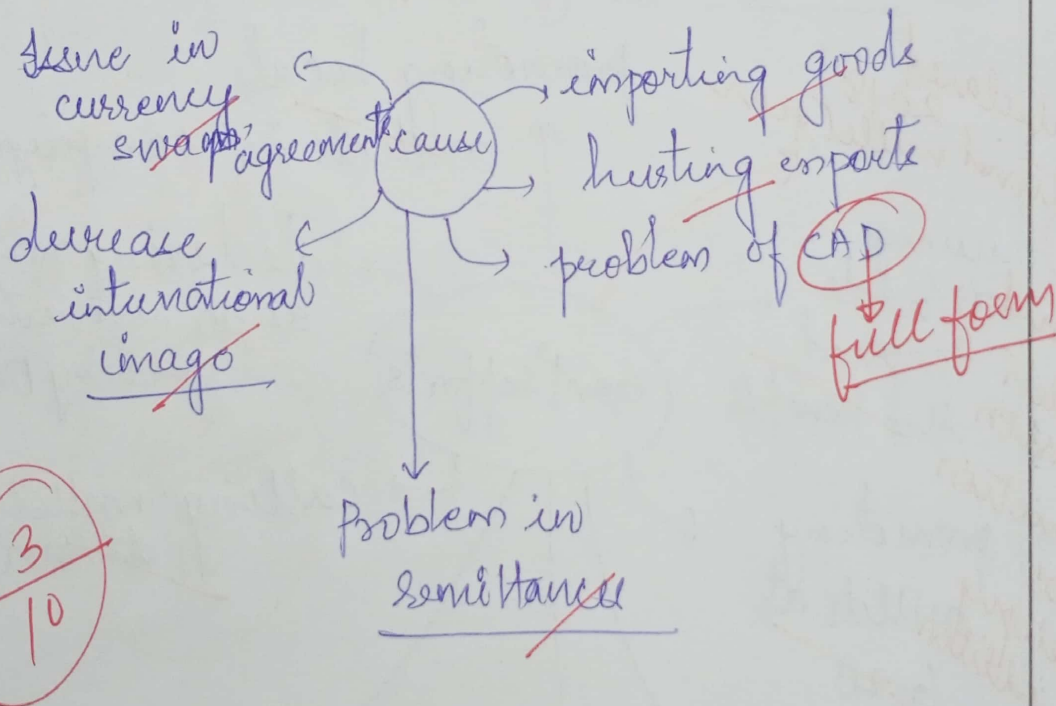 Issue in
currency
swaps' agreement
cause
importing goods
hurting exports
problem of CAD
full form
decrease
international
image
Problem in
remittances
3
10